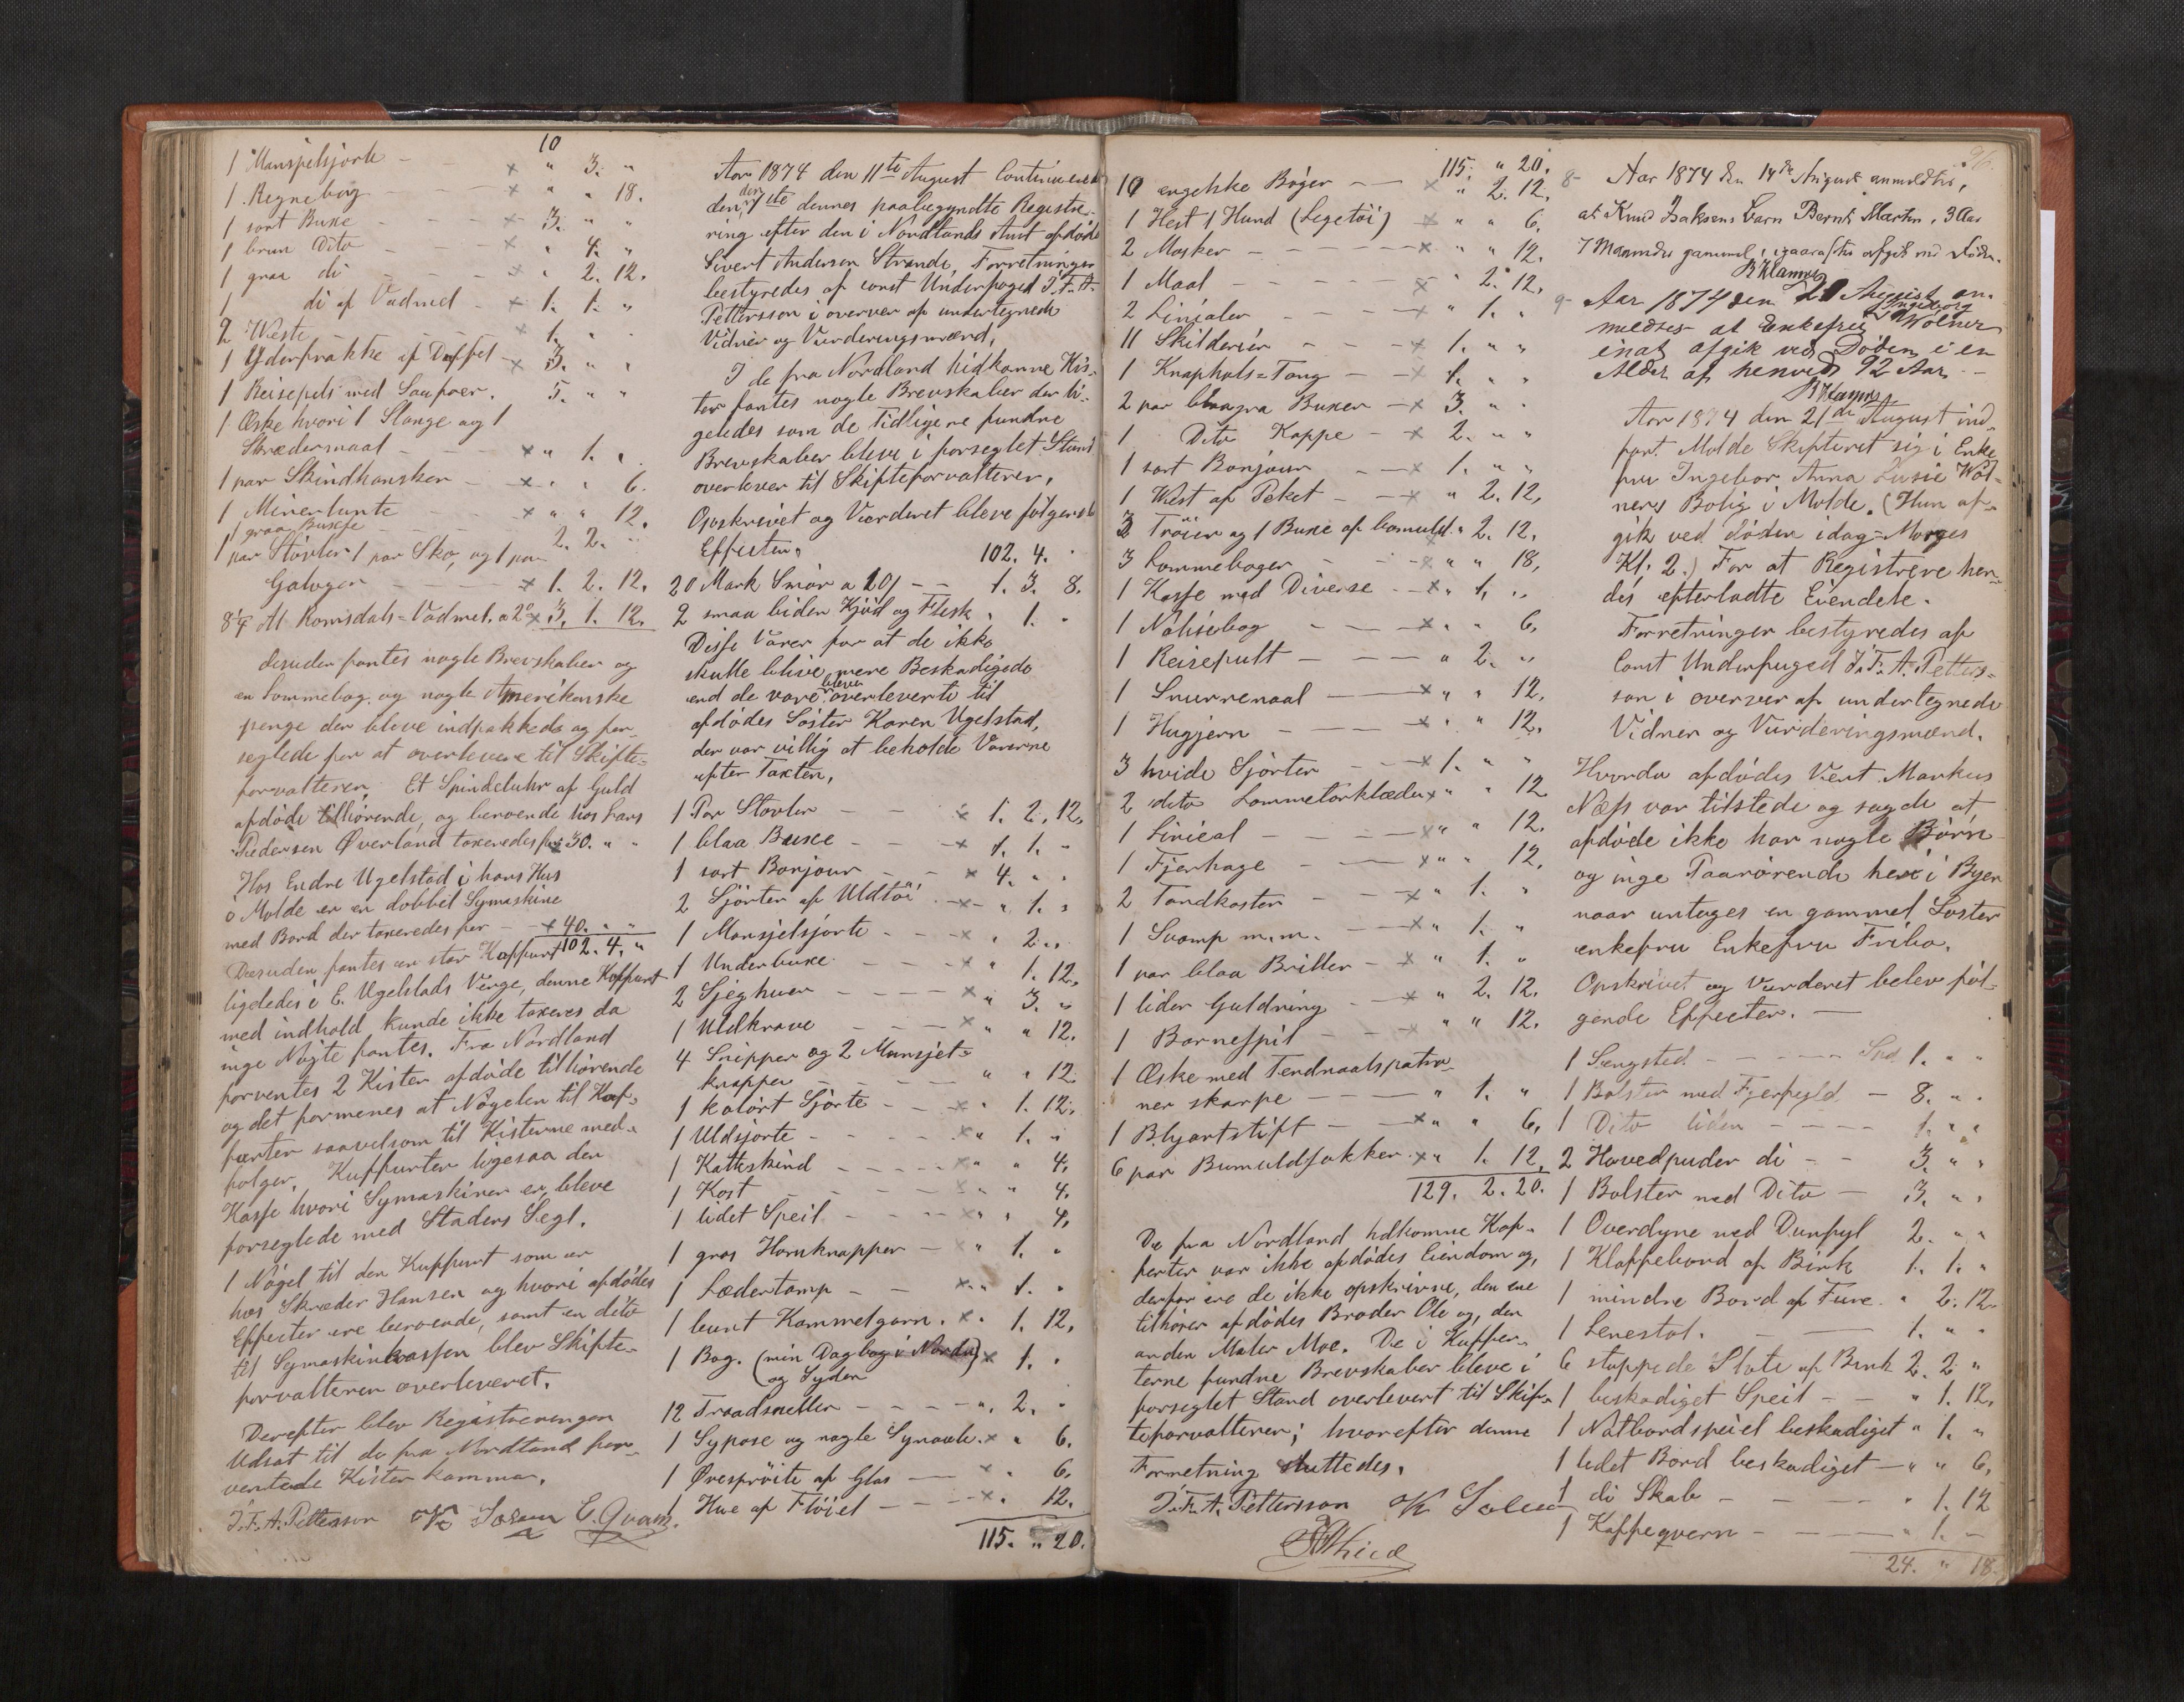 10
1 Manspelsjorte - - × " 3. "
1 Regnebog - - × " " 18.
1 sort Buxe - - × 3. " "
1 brun Dito - - × " 4. "
1 graa di - - × " 2. 12.
1 di af Vadmel × 1. 1. "
2 Veste × 1. " "
1 Yderfrakke af Duffel × 3. " "
1 Reisepels med Saufoer. 5. " "
1 Æske hvori 1 Slange og 1
Skrædermaal - × " 1. "
1 par Skindhansker - × " " 6.
1 Minerlunte × " " 12.
1 graa Buxse 2. 2. "
1 par Støvler 1 par Sko, og 1 par
Galoger - × 1. 2. 12.
8 1/4 Al Romsdals-Vadmel. a 2 × 3. 1. 12.
desuden fantes nogle Brevskaber og
en Lommebog og nogle Amerikanske
penge der bleve indpakkede og for-
seglede for at overlevere til Skifte-
forvalteren. Et Spindeluhr af Guld
afdøde tilhørende, og beroende hos Lars
Pedersen Øverland taxeredes for × 30. " "
Hos Endre Ugelstad i hans Hus
i Molde er en dobbel Symaskine
med Bord der taxeredes for - × 40. " "
102. 4. "
Desuden fantes en stor Kuffurt
ligeledes i E. Ugelstads Verge, denne Kuffurt
med indhold kunde ikke taxeres da
inge Nøgle fantes. Fra Nordland
forventes 2 Kister afdøde tilhørende
og det formenes at Nøgelen til Kuf-
furten saavelsom til Kisterne med-
følger. Kuffurten ligesaa den
Kasse hvori Symaskinen er, bleve
forseglede med Stadens Segl.
1 Nøgel til den Kuffurt som er
hos Skræder Hansen og hvori afdødes
Effecter ere beroende, samt en dito
til Symaskinkassen blev Skifte-
forvalteren overleveret.
Derefter blev Registreringen
Udsat til de fra Nordland for-
ventede Kister kommer.
J. F. A. Pettersson K Solem E. Qvam.
Aar 1874 den 11te August Continueret
den den 7de dennes paabegyndte Registre-
ring efter den i Nordlands Amt afdøde
Sivert Andersen Strande, Forretningen
bestyredes af const Underfoged J. F. A.
Pettersson i overvær af undertegnede
Vidner og Vurderingsmænd,
I de fra Nordland hidkomne Kis-
ter fantes nogle Brevskaber der li-
geledes som de Tidligere fundne
Brevskaber bleve i forseglet Stand
overlever til Skifteforvalteren,
Opskrivet og Vurderet bleve følgende
Effecter. 102. 4. "
20 Mark Smør a 10/ - - 1. 3. 8.
2 smaa biden Kjød og Flesk " 1. "
Disse Varer for at de ikke
skulle blive mere Beskadigede
end de vare bleven overleverte til
afdødes Søster Karen Ugelstad,
der var villig at beholde Varerne
efter Taxten,
1 Par Støvler - × 1. 2. 12,
1 blaa Buxe - - × 1. 1. "
1 sort Bonjour - - × 4. " "
2 Sjorter af Uldtøi - × " 1. "
1 Mansjelsjorte - - × " 2. "
1 Underbuxe - - × " 1. 12,
2 Sjeghuer - - × " 3. "
1 Uldkrave - - × " " 12.
4 Snipper og 2 Mansjet-
knapper - - " " 12.
1 kolørt Sjorte - - × " 1. 12.
1 Uldsjorte - - × " 1. "
1 Katteskind - - × " " 4.
1 Kost - - × " " 4.
1 lidet Speil - - × " " 4,
1 gros Hornknapper - × " 1. "
1 Lædertamp - - × " 1. "
1 bunt Kammelgarn. × " 1. 12,
1 Bog. (min Dagbog i Norden) × 1. "
og Syden
12 Traadsneller - - - " 2. "
1 Sypose og nogle Synaale. × " 6.
1 Øresprøite af Glas - × " 6,
1 Hue af Fløiel - - × " 12.
115. " 20.
115. " 20.
10 engelske Bøger - - × " 2. 12.
1 Hest 1 Hund (Legetøi) × " " 6.
2 Masker - - × " " 12.
1 Maal - - × " 2. 12.
2 Linialer - - × " 1. "
11 Skilderier - - × 1. " "
1 Knaphuls-Tang - - × 1. " "
2 par blaagra Buxer - × 3. " "
1 Dito Kappe - × 2. " "
1 sort Bonjour - - × 1. " "
1 Vest af Peket - - × " 2. 12,
3 Trøier og 1 Buxe af bomuld " 2. 12.
3 Lommebøger - - × " " 18,
1 Kasse med Diverse - × " 1. "
1 Nótisebog - - × " " 6,
1 Reisepult - - - " 2. "
1 Snurrenaal - × " " 12.
1 Hugjern - - × " " 12.
3 hvide Sjorter - - × 1. " "
2 dito Lommetørklæder × " " 12
1 Linieal - - × " " 12.
1 Fjerhage - - × " " 12.
2 Tandkoster - - × " 1. "
1 Svamp m.m. - - × " 1. "
1 par blaa Briller - × " 1. "
1 liden Guldring - × " 2. 12.
1 Barnespil - - × " " 12.
1 Æske med Tendnaalspatro-
ner skarpe - - - " 1. "
1 Blyantstift - - × " " 6,
6 par Bumuldsokker × " 1. 12.
129. 2. 20.
De fra Nordland hidkomne Kof-
ferter var ikke afdødes Eiendom og,
derfor ere de ikke opskrivne, den ene
tilhører afdødes Broder Ole og, den
anden Maler Moe. De i Kuffer-
terne fundne Brevskaber bleve i
forseglet Stand overlevert til Skif-
teforvalteren; hvorefter denne
Forretning sluttedes.
J. F. A. Pettersson K Solem
8- Aar 1874 den 14de August anmeldtes,
at Knud Isaksens Barn Bernt Martin, 3 Aar
7 Maaneder gammel, igaaraftes afgik ved Døden.
9- Aar 1874 den 21 August an-
meldtes at Enkefru Ingeborg Wolner
inat afgik ved Døden i en
Alder af henved 92 Aar -
Aar 1874 den 21de August ind-
fant Molde Skifteret sig i Enke
fru Ingebor Anna Lusie Wol-
ners Bolig i Molde. (Hun af-
gik ved døden idag-Morges
Kl. 2.) For at Registrere hen-
des efterladte Eiendele.
Forretningen bestyredes af
Const Underfoged J. F. A. Petters-
son i overvær af undertegnede
Vidner og Vurderingsmænd.
Hvorda afdødes Vert Markus
Næss var tilstede og sagde at
afdøde ikke har nogle Børn
og inge Paarørende here i Byen
naar untages en gammel Søster
enkefru Enkefru Fribo.
Opskrivet og Vurderet belev føl-
gende Effecter. -
1 Sengsted - - - Spd 1. " "
1 Bolster med Fjerfyld - 8. " "
1 Dito liden - - - 1. " "
2 Hovedpuder di - - 3. " "
1 Bolster med Dito - 3. " "
1 Overdyne med Dunfyl 2. " "
1 Klappebord af Birk 1. 1. "
1 mindre Bord af Fure. " 2. 12.
1 Lenestol. - - 1. " "
6 stoppede Stole af Birk 2. 2. "
1 beskadiget Speil - - " 1. 12,
1 Natbordspeiel beskadiget " 1. "
1 lidet Bord beskadiget - " " 6,
1 di Skab - - - " 1. 12
1 Kaffeqvern - - " 1. -
24. " 18.